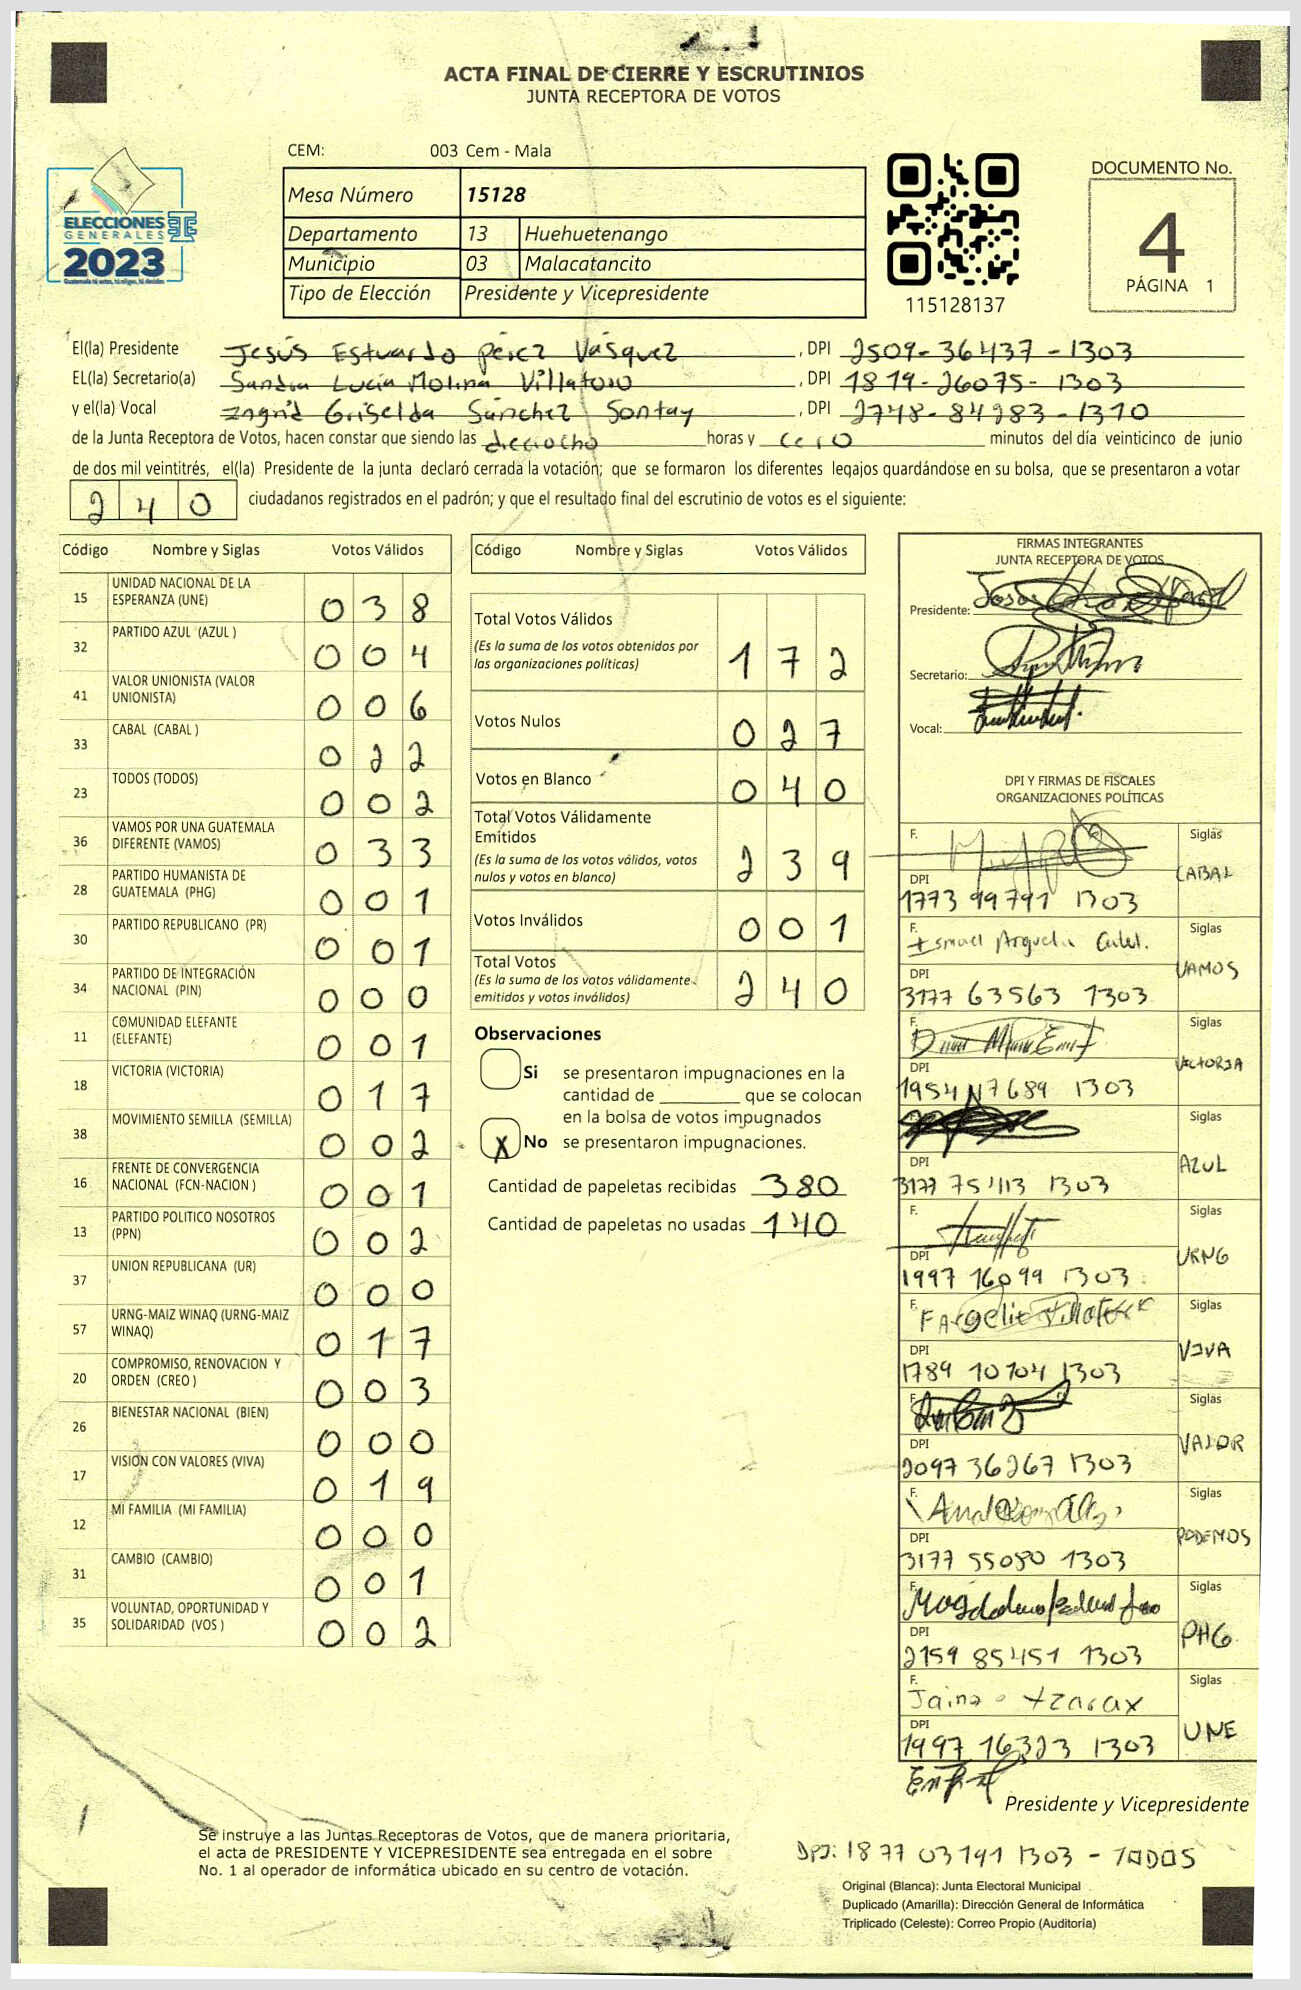 ACTA FINAL DE CIERRE Y ESCRUTINIOS
JUNTA RECEPTORA DE VOTOS
CEM: 003 Cem - Mala
Mesa Número 15128
Departamento 13 Huehuetenango
Municipio 03 Malacatancito
Tipo de Elección Presidente y Vicepresidente
ELECCIONES
GENERALES
2023
115128137
DOCUMENTO No.
4
PÁGINA 1
El(la) Presidente Jesús Estuardo Pérez Vásquez, DPI 2509-36437-1303
EL(la) Secretario(a) Sandra Lucía Molina Villatoro, DPI 1819-26075-1303
y el(la) Vocal Ingrid Griselda Sánchez Sontay, DPI 2748-84283-1310
de la Junta Receptora de Votos, hacen constar que siendo las dieciocho horas y cero minutos del día veinticinco de junio
de dos mil veintitrés, el(la) Presidente de la junta declaró cerrada la votación; que se formaron los diferentes legajos guardándose en su bolsa, que se presentaron a votar
240 ciudadanos registrados en el padrón; y que el resultado final del escrutinio de votos es el siguiente:
Código Nombre y Siglas Votos Válidos
15 UNIDAD NACIONAL DE LA ESPERANZA (UNE) 038
32 PARTIDO AZUL (AZUL ) 004
41 VALOR UNIONISTA (VALOR UNIONISTA) 006
33 CABAL (CABAL ) 022
23 TODOS (TODOS) 002
36 VAMOS POR UNA GUATEMALA DIFERENTE (VAMOS) 033
28 PARTIDO HUMANISTA DE GUATEMALA (PHG) 001
30 PARTIDO REPUBLICANO (PR) 001
34 PARTIDO DE INTEGRACIÓN NACIONAL (PIN) 000
11 COMUNIDAD ELEFANTE (ELEFANTE) 001
18 VICTORIA (VICTORIA) 017
38 MOVIMIENTO SEMILLA (SEMILLA) 002
16 FRENTE DE CONVERGENCIA NACIONAL (FCN-NACION ) 001
13 PARTIDO POLITICO NOSOTROS (PPN) 002
37 UNION REPUBLICANA (UR) 000
57 URNG-MAIZ WINAQ (URNG-MAIZ WINAQ) 017
20 COMPROMISO, RENOVACION Y ORDEN (CREO ) 003
26 BIENESTAR NACIONAL (BIEN) 000
17 VISION CON VALORES (VIVA) 019
12 MI FAMILIA (MI FAMILIA) 000
31 CAMBIO (CAMBIO) 001
35 VOLUNTAD, OPORTUNIDAD Y SOLIDARIDAD (VOS ) 002
Código Nombre y Siglas Votos Válidos
Total Votos Válidos 172
(Es la suma de los votos obtenidos por
las organizaciones políticas)
Votos Nulos 027
Votos en Blanco 040
Total Votos Válidamente
Emitidos 239
(Es la suma de los votos válidos, votos
nulos y votos en blanco)
Votos Inválidos 001
Total Votos 240
(Es la suma de los votos válidamente
emitidos y votos inválidos)
Observaciones
Si se presentaron impugnaciones en la
cantidad de ________ que se colocan
en la bolsa de votos impugnados
X No se presentaron impugnaciones.
Cantidad de papeletas recibidas 380
Cantidad de papeletas no usadas 140
FIRMAS INTEGRANTES
JUNTA RECEPTORA DE VOTOS
Presidente:
Secretario:
Vocal:
DPI Y FIRMAS DE FISCALES
ORGANIZACIONES POLÍTICAS
F. Siglas
CABAL
DPI
1773 99791 1303
F. Siglas
VAMOS
DPI
3177 63563 1303
F. Siglas
VICTORIA
DPI
1954 17689 1303
F. Siglas
AZUL
DPI
3177 75113 1303
F. Siglas
URNG
DPI
1997 16099 1303
F. Siglas
VIVA
DPI
1789 10704 1303
F. Siglas
VALOR
DPI
2097 36267 1303
F. Siglas
PODEMOS
DPI
3177 55080 1303
F. Siglas
PHG
DPI
2159 85451 1303
F. Siglas
UNE
DPI
1997 16323 1303
Presidente y Vicepresidente
DPI: 1877 03191 1303 - TODOS
Se instruye a las Juntas Receptoras de Votos, que de manera prioritaria,
el acta de PRESIDENTE Y VICEPRESIDENTE sea entregada en el sobre
No. 1 al operador de informática ubicado en su centro de votación.
Original (Blanca): Junta Electoral Municipal
Duplicado (Amarilla): Dirección General de Informática
Triplicado (Celeste): Correo Propio (Auditoría)